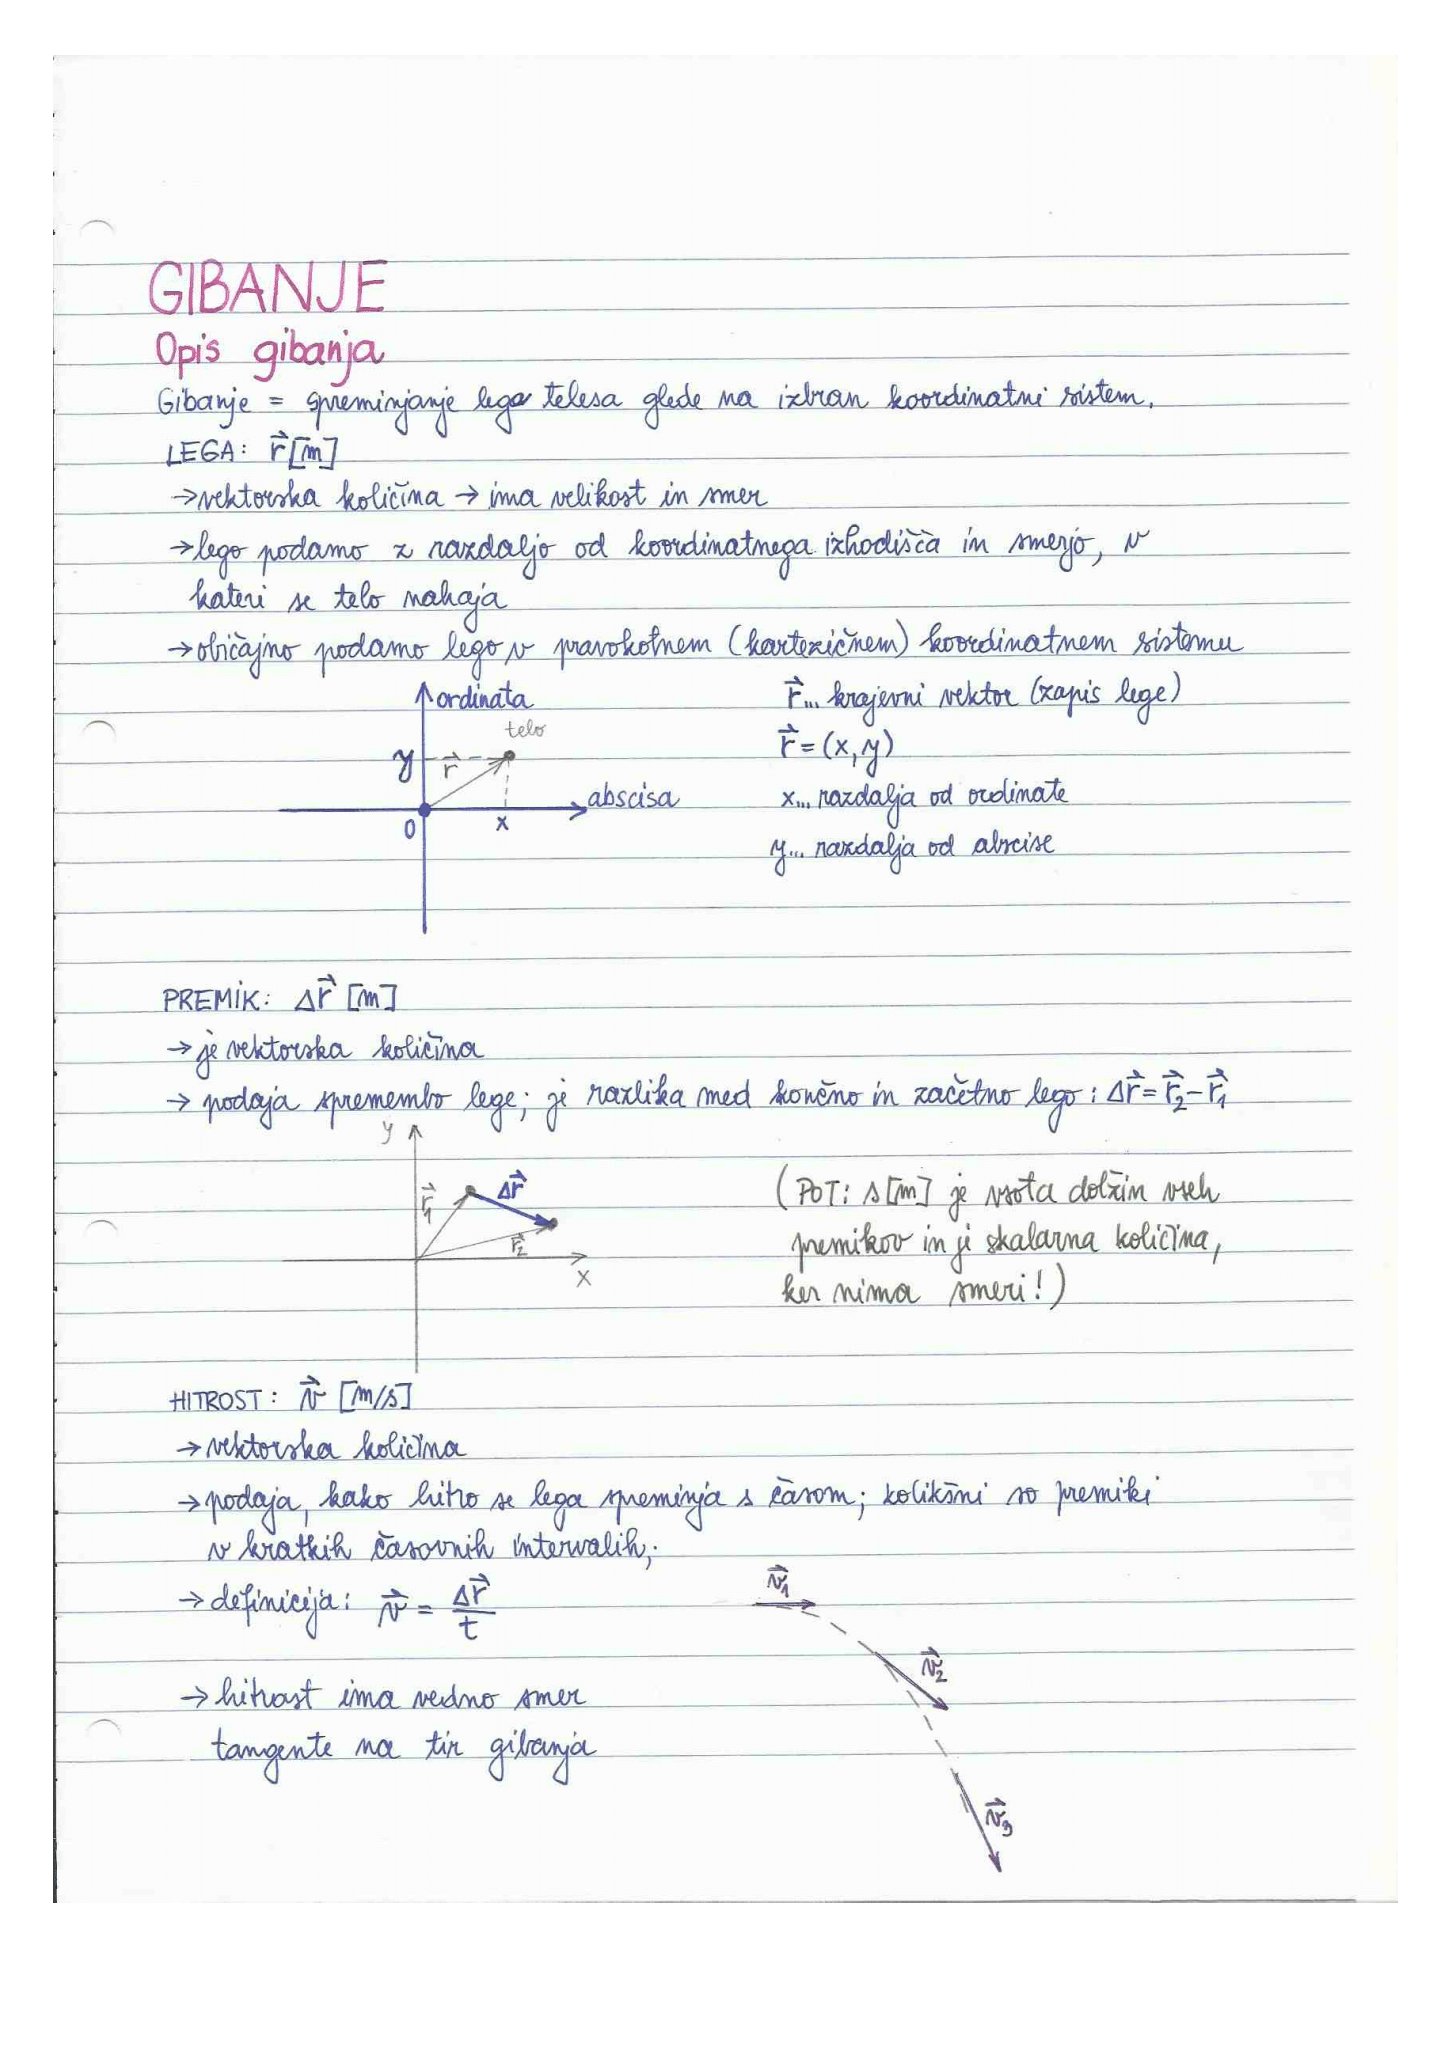 GIBANJE
Opis gibanja
Gibanje = spreminjanje lega telesa glede na izbran koordinatni sistem.
LEGA: r⃗ [m]
→ vektorska količina → ima velikost in smer
→ lego podamo z razdaljo od koordinatnega izhodišča in smerjo, v
kateri se telo nahaja
→ običajno podamo lego v pravokotnem (kartezičnem) koordinatnem sistemu
ordinata
telo
y
r⃗
abscisa
0
x
r⃗... krajevni vektor (zapis lege)
r⃗ = (x, y)
x... razdalja od ordinate
y... razdalja od abscise
PREMIK: Δr⃗ [m]
→ je vektorska količina
→ podaja spremembo lege; je razlika med končno in začetno lego: Δr⃗ = r⃗₂ - r⃗₁
y
r⃗₁
Δr⃗
r⃗₂
x
(POT: s [m] je vsota dolžin vseh
premikov in je skalarna količina,
ker nima smeri!)
HITROST: v⃗ [m/s]
→ vektorska količina
→ podaja, kako hitro se lega spreminja s časom; kolikšni so premiki
v kratkih časovnih intervalih;
→ definicija: v⃗ = Δr⃗/t
→ hitrost ima vedno smer
tangente na tir gibanja
v⃗₁
v⃗₂
v⃗₃